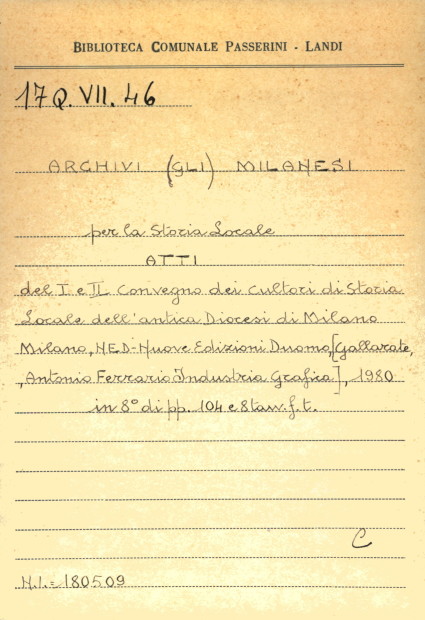 BIBLIOTECA COMUNALE PASSERINI - LANDI
17 Q. VII. 46
ARCHIVI (GLI) MILANESI
per la Storia Locale
ATTI
del I e II Convegno dei cultori di Storia
Locale dell'antica Diocesi di Milano
Milano, NED-Nuove Edizioni Duomo, [Gallarate,
Antonio Ferrario Industria Grafica], 1980
in 8° di pp. 104 e 8 tav. f. t.
C
N.I. = 180509